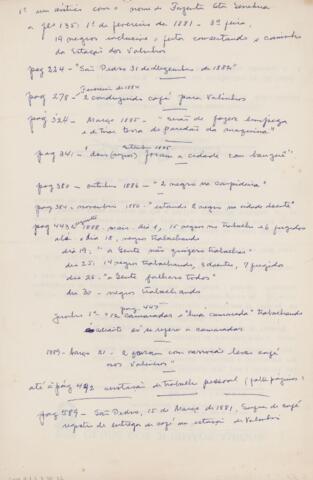 1º um
com o nome de Fazenda Sta Genebra
a fl 135: 1º de fevereiro de 1881 - 3ª feira,
19 negros inclusive o feitor consertando o caminho
da Estação dos Valinhos
pag 224 - "São Pedro 31 de Dezembro de 1882"
Fevereiro de 1884
pag 278 - 2 conduzindo café para Valinhos
pag 324 - Março 1885 - de fazer limpeza
e tirar terra do paredão da maquina"
outubro 1885
pag 341 - 2 (negros) foram a cidade com banguê"
pag 380 - outubro 1886 - "2 negros na carpideira"
pag 384, novembro 1886 - "estando 2 negros na cidade doente"
pag 443 e seguinte 1888 - maio. dia 1, 15 negros no trabalho e 6 fugidos
até o dia 18, negros trabalhando
dia 19: "a Gente não quizeram trabalhar"
dia 25: 14 negros trabalhando, 3 doentes, 7 fugidos
dia 26 - "a Gente falharão todos"
dia 30 - negros trabalhando
pag 445
junho 1º - "12 camaradas e "huã camarada" trabalhando
só se refere a camaradas
1889 - março 21 - 2 foram com carroção levar café
nos Valinhos"
até a pág 492 anotação do trabalho pessoal (falta páginas)
pag 589 - São Pedro, 15 de Março de 1881, de café
registro de entrega de café na estação de Valinhos